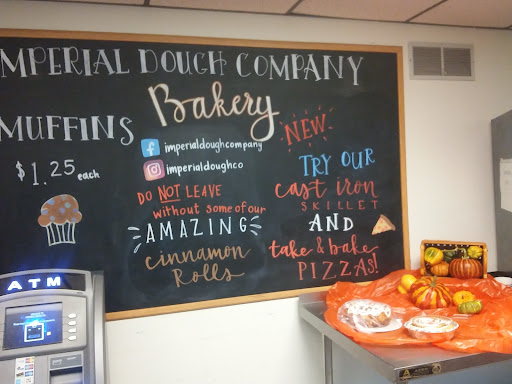 IMPERIAL DOUGH COMPANY
Bakery
MUFFINS
$1.25 each
imperialdoughcompany
imperialdoughco
DO NOT LEAVE
without some of our
AMAZING
cinnamon
Rolls
NEW
TRY OUR
cast iron
SKILLET
AND
take & bake
PIZZAS!
ATM